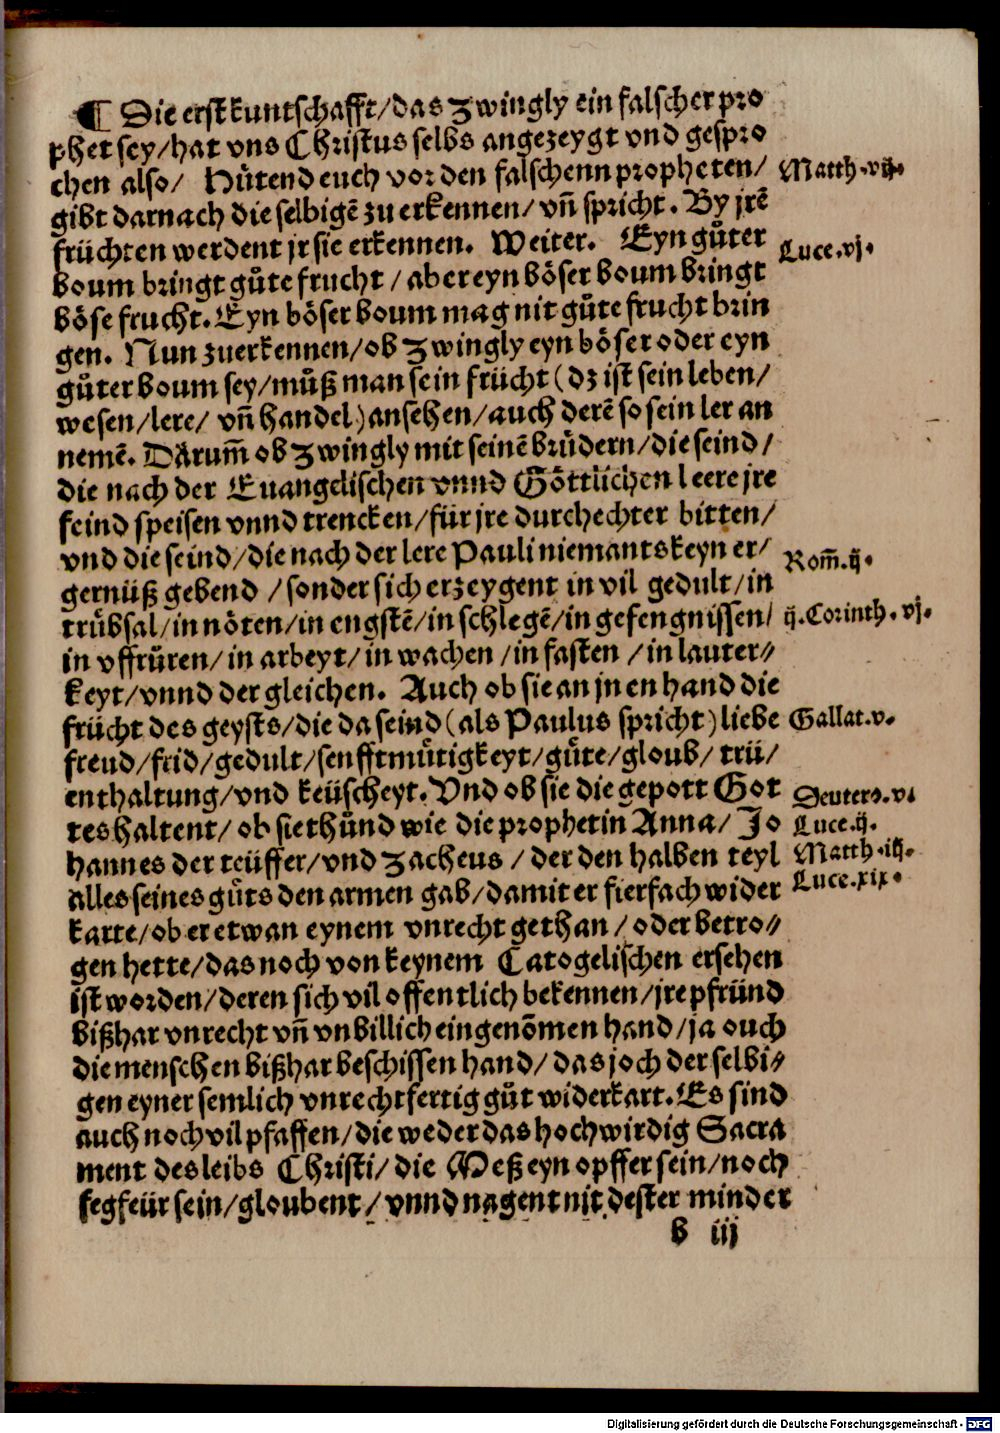 ¶ Die erst kuntschafft/das Zwingly ein falscher pro
phet sey/hat vns Christus selbs angezeygt vnd gespro
chen also/ Hütend euch vor den falschenn propheten/ Matth.vij.
gibt darnach die selbigē zu erkennen/vn̄ spricht. By jrē
früchten werdent jr sie erkennen. Weiter. Eyn gůter Luce.vj.
boum bringt gůte frucht/aber eyn böser boum bringt
böse frucht. Eyn böser boum mag nit gůte frucht brin
gen. Nun zuerkennen/ob Zwingly eyn böser oder eyn
gůter boum sey/můß man sein frücht (dz ist sein leben/
wesen/lere/ vn̄ handel) ansehen/auch derē so sein ler an
nemē. Darum̄ ob Zwingly mit seinē brůdern/die seind/
die nach der Euangelischen vnnd Göttlichen leere jre
feind speisen vnnd trencken/für jre durchechter bitten/
vnd die seind/die nach der lere Pauli niemants keyn er/ Rom̄.ij.
gernüß gebend/sonder sich erzeygent in vil gedult/in
trůbsal/in nöten/in engstē/in schlegē/in gefengnissen/ ij.Corinth.vj.
in vffrůren/in arbeyt/in wachen/in fasten/in lauter⸗
keyt/vnnd der gleichen. Auch ob sie an jnen hand die
frücht des geysts/die da seind (als Paulus spricht) liebe Gallat.v.
freud/frid/gedult/senfftmůtigkeyt/gůte/gloub/trü/
enthaltung/vnd keüscheyt. Vnd ob sie die gepott Got Deutero.vi
tes haltent/ob sie thůnd wie die prophetin Anna/ Jo Luce.ij.
hannes der teüffer/vnd Zacheus/der den halben teyl Matth.iij.
alles seines gůts den armen gab/damit er fierfach wider Luce.xix.
karte/ob er etwan eynem vnrecht gethan/oder betro⸗
gen hette/das noch von keynem Catogelischen ersehen
ist worden/deren sich vil offentlich bekennen/jre pfründ
bißhar vnrecht vn̄ vnbillich eingenōmen hand/ja ouch
die menschen bißhar beschissen hand/das joch der selbi⸗
gen eyner semlich vnrechtfertig gůt widerkart. Es sind
auch noch vil pfaffen/die weder das hochwirdig Sacra
ment des leibs Christi/die Meß eyn opffer sein/noch
fegfeür sein/gloubent/vnnd nagent nit dester minder
b iij
Digitalisierung gefördert durch die Deutsche Forschungsgemeinschaft - DFG